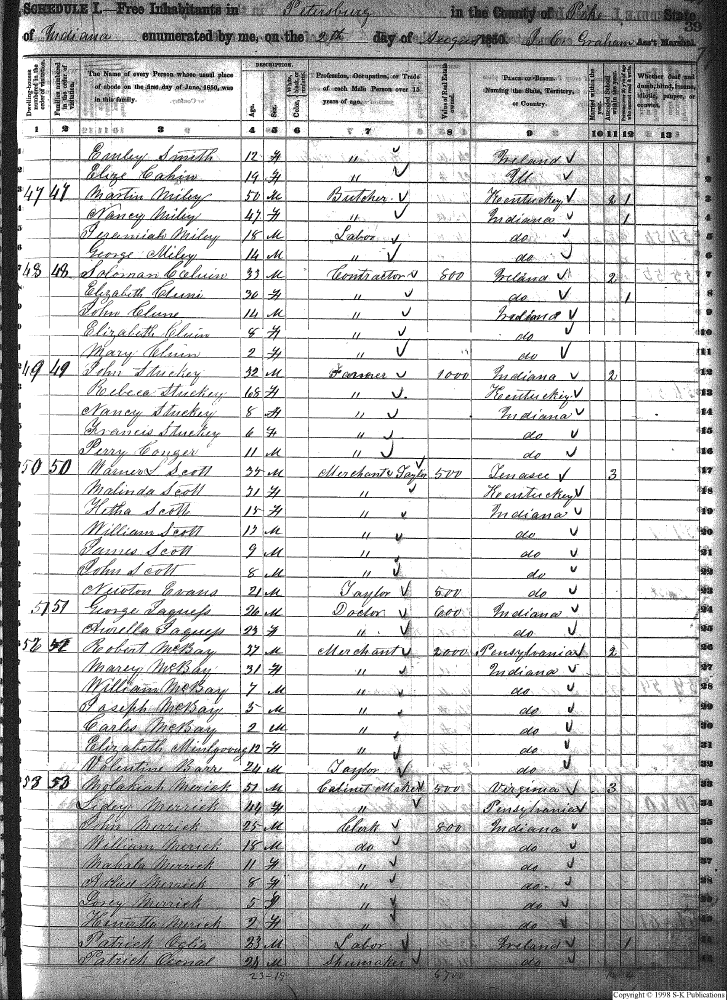 SCHEDULE I.—Free Inhabitants in Petersburg in the County of Pike State
of Indiana enumerated by me, on the 2th day of 1850. Graham Ass't Marshal.
39
DESCRIPTION.
Dwelling-houses numbered in the order of visitation.
Families numbered in the order of visitation.
The Name of every Person whose usual place of abode on the first day of June, 1850, was in this family.
Age.
Sex.
Profession, Occupation, or Trade of each Male Person over 15 years of age.
Value of Real Estate owned.
PLACE OF BIRTH. Naming the State, Territory, or Country.
Whether deaf and dumb, blind, insane, idiotic, pauper, or convict.
1 2 3 4 5 6 7 8 9 10 11 12 13
Emley Smith 12 F " Ireland
Elize Cahin 19 F "
47 47 Martin Miley 50 M Butcher Kentuckey 2 1
Nancy Miley 47 F " Indiana 1
Jeremiah Miley 18 M Labor do
George Miley 14 M " do
48 48 Soloman 33 M Contractor 800 Ireland 2
Elizabeth Cluni 30 F " do 1
John Clune 14 M " Indiana
Elizabeth Cluin 8 F " do
Mary Cluin 2 F " do
49 49 John Stuckey 32 M Farmer 1000 Indiana 2
Rebeca Stuckey 68 F " Kentuckiy
Nancy Stuckey 8 F " Indiana
Francis Stuckey 6 F " do
Perry Conger 11 M " do
50 50 Warner L Scott 35 M Merchant Taylor 500 Tenasee 3
Malinda Scott 31 F " Kentuckey
Hetha Scott 15 F " Indiana
William Scott 13 M " do
James Scott 9 M " do
John Scott 8 M " do
Newton Evans 21 M Taylor 500 do
51 51 George Jaquess 26 M Doctor 600 Indiana
Aurella Jaquess 23 F " do
52 52 Robert McBay 37 M Merchant 2000 Pensylvania 2
Marey McBay 31 F " Indiana
William McBay 7 M " do
Joseph McBay 5 M " do
Carles McBay 2 M " do
Elizabeth 12 F " do
Valentine Barr 24 M Taylor do
53 53 Malakiah Merick 51 M Cabinet Maker 500 Virginia 3
Lidey Merrick 44 F " Pensylvania
John Merrick 25 M Clerk 800 Indiana
William Merick 18 M do do
Mahala Merrick 11 F " do
Merrick 8 F " do
Merrick 5 F " do
Henrietta Merick 2 F " do
Patrick 23 M Labor Ireland 1
Patrick 28 M Shumaker do
23-19 6700
Copyright © 1998 S-K Publications